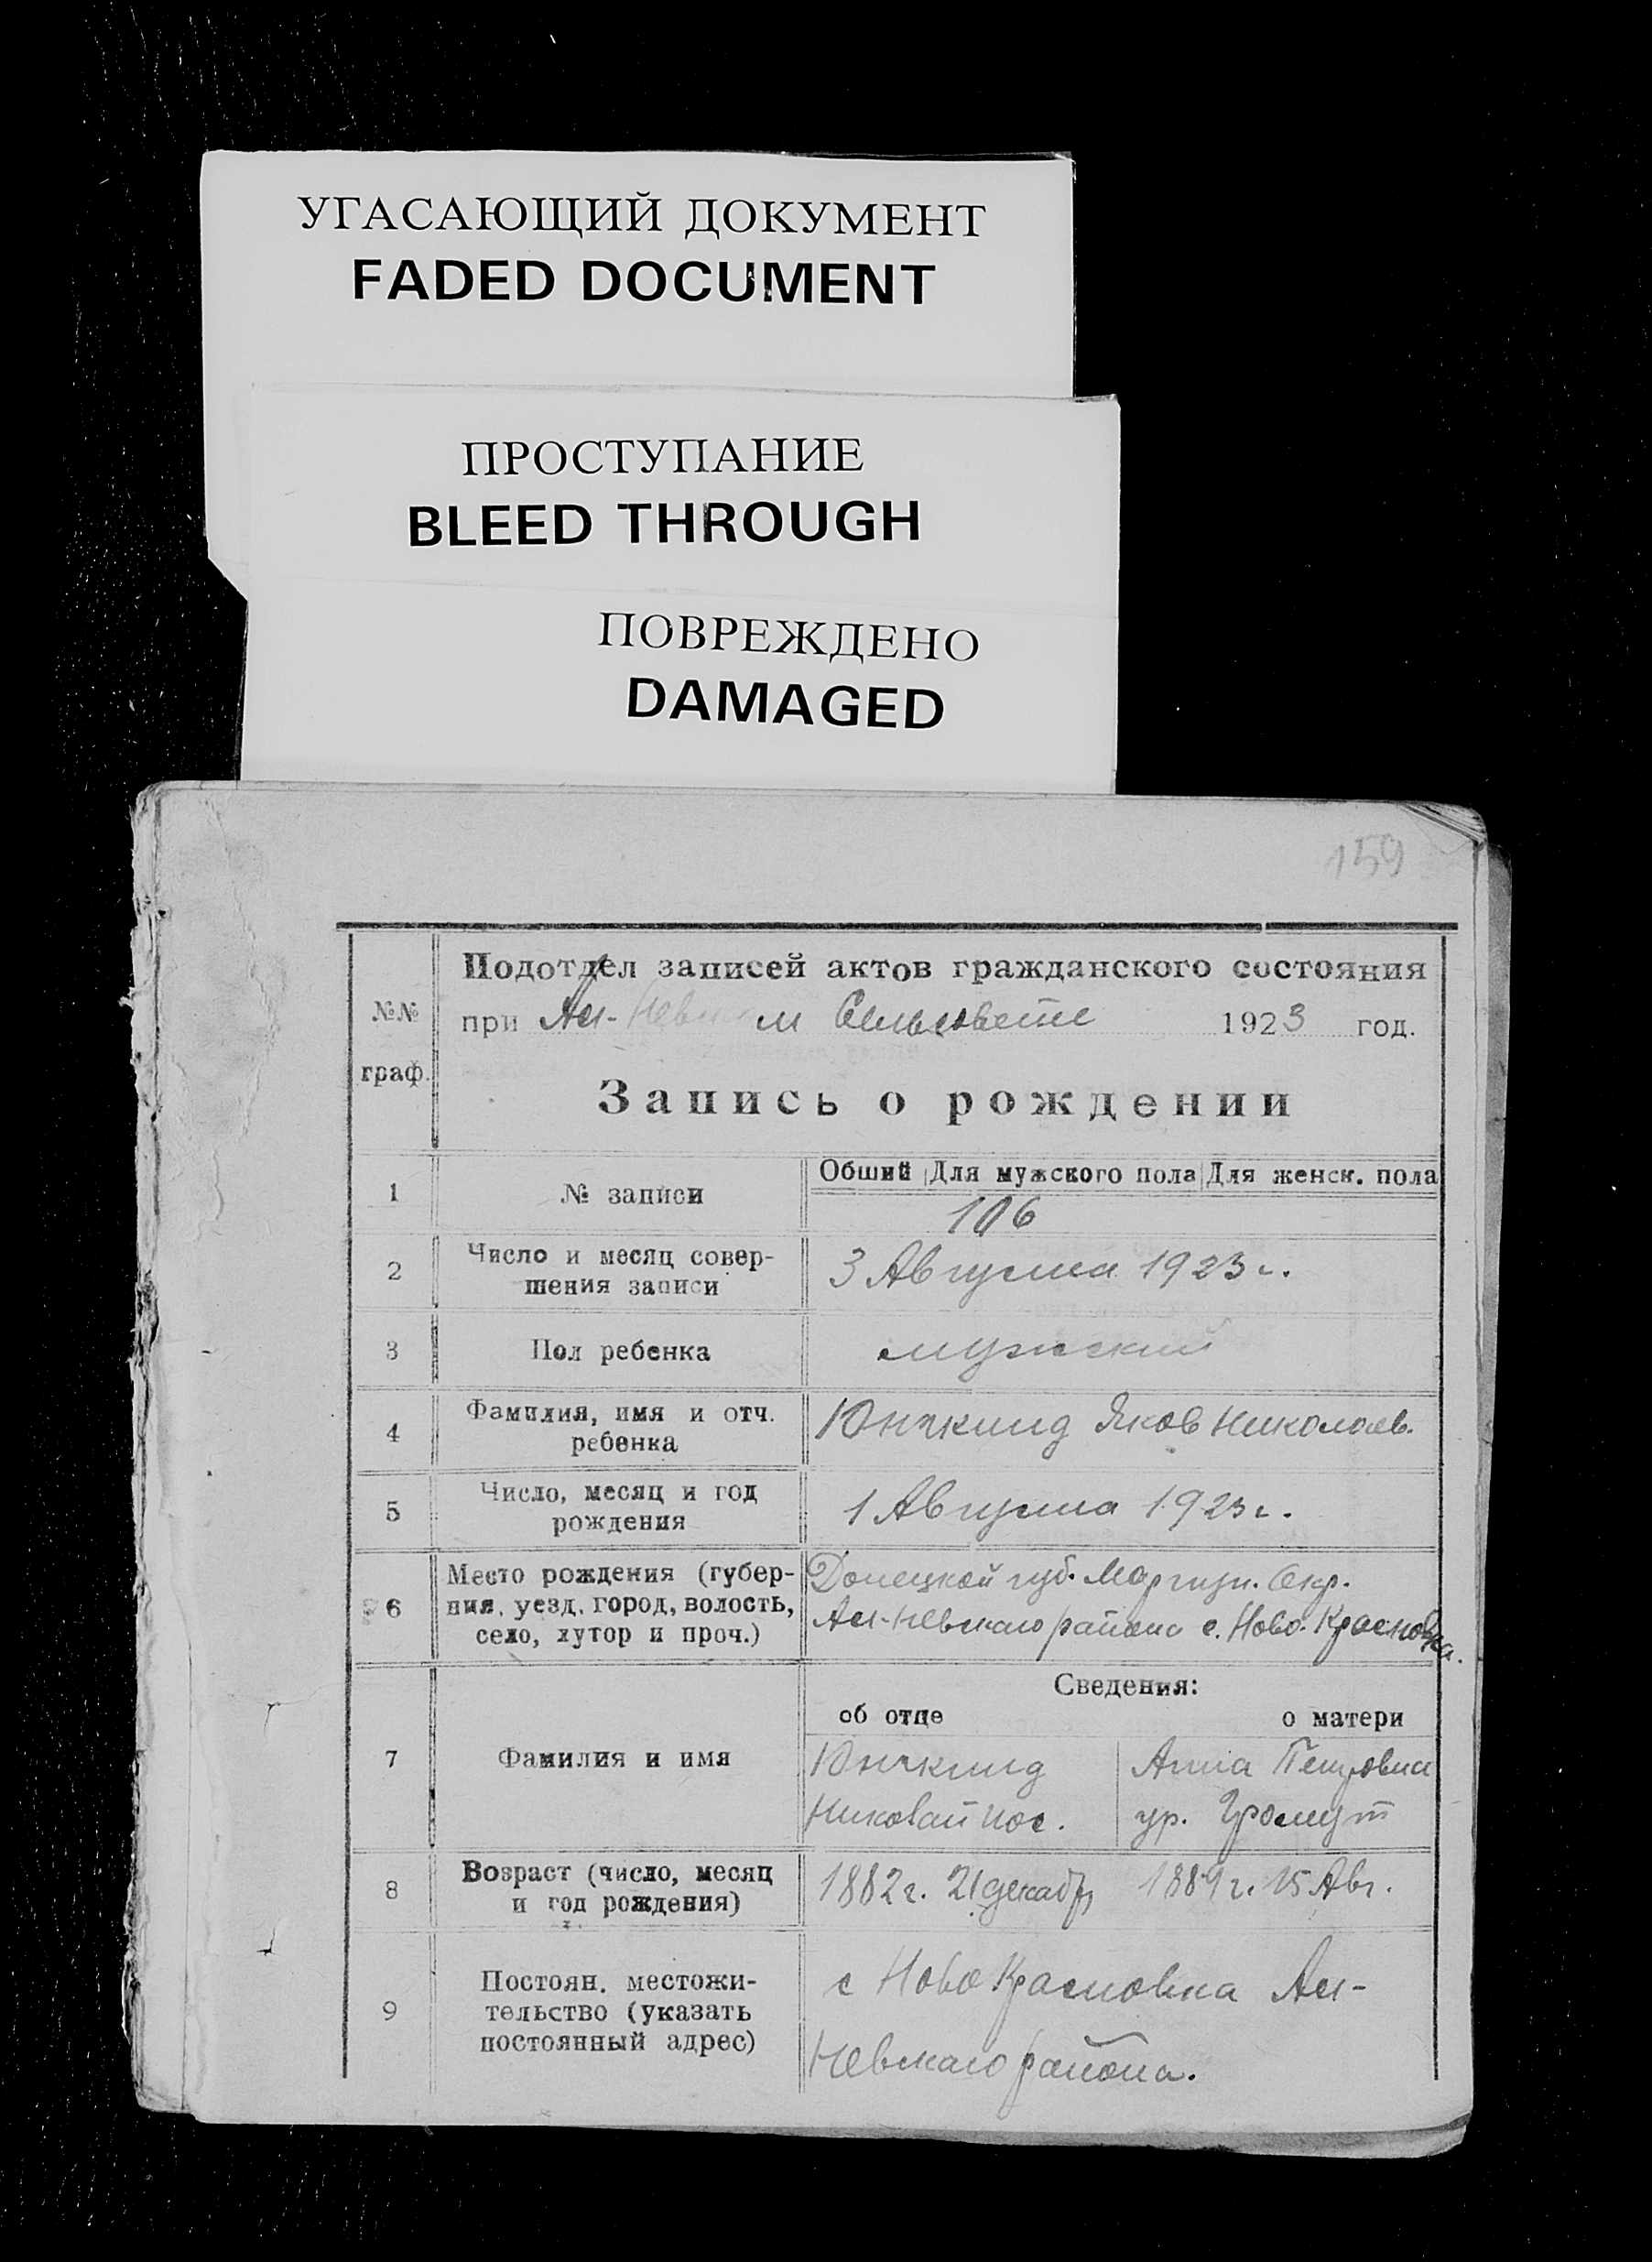 УГАСАЮЩИЙ ДОКУМЕНТ
FADED DOCUMENT
ПРОСТУПАНИЕ
BLEED THROUGH
ПОВРЕЖДЕНО
DAMAGED
159
№№ граф.
Подотдел записей актов гражданского состояния
при Ал-Невском Сельсовете 1923 год.
Запись о рождении
Общий Для мужского пола Для женск. пола
1 № записи 106
2 Число и месяц совер-
шения записи 3 Августа 1923 г.
3 Пол ребенка мужский
4 Фамилия, имя и отч.
ребенка Юнккинд Яков Николаев.
5 Число, месяц и год
рождения 1 Августа 1923 г.
6 Место рождения (губер-
ния, уезд, город, волость,
село, хутор и проч.)
Донецкой губ. Окр.
Ал-Невскаго района с. Ново-Красновка.
Сведения:
об отце о матери
7 Фамилия и имя
Юнккинд Анна Петровна
Николай ур.
8 Возраст (число, месяц
и год рождения)
1882 г. 21 декабр 1889 г. 15 Авг.
9 Постоян. местожи-
тельство (указать
постоянный адрес)
с Ново Красновка Ал-
Невскаго района.